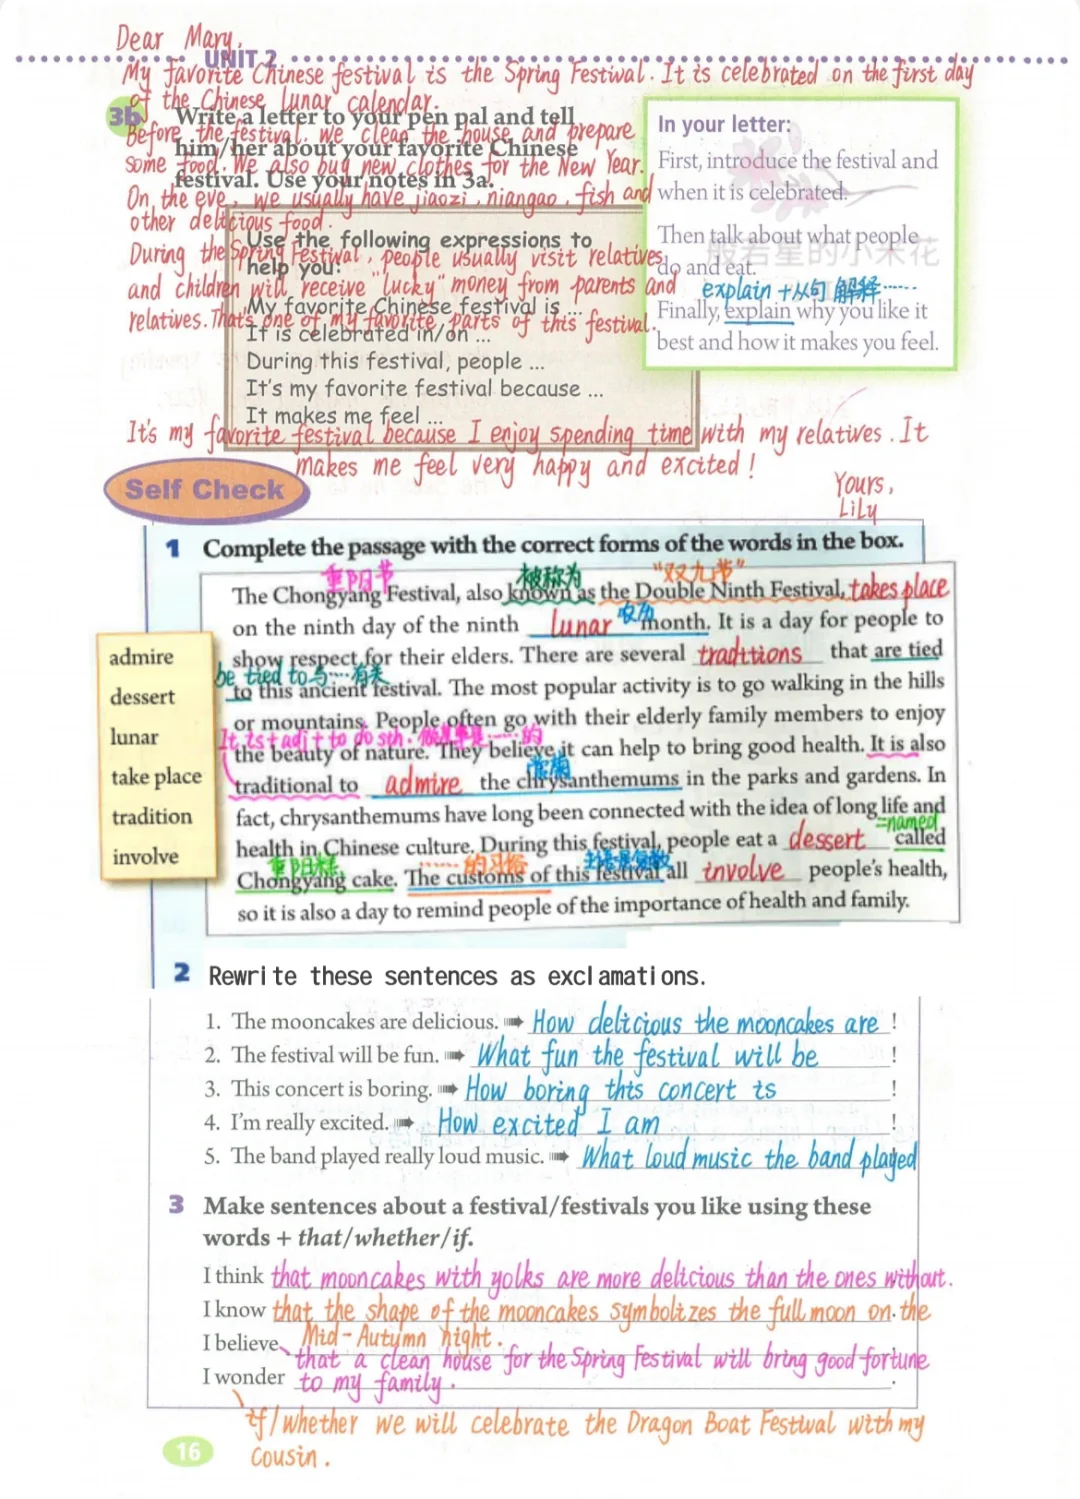 Dear Mary,
UNIT 2
My favorite Chinese festival is the Spring Festival. It is celebrated on the first day
of the Chinese lunar calendar.
3b Write a letter to your pen pal and tell
him/her about your favorite Chinese
festival. Use your notes in 3a.
Before the festival, we clean the house and prepare
some food. We also buy new clothes for the New Year.
On the eve, we usually have jiaozi, niangao, fish and
other delicious food.
During the Spring Festival, people usually visit relatives
and children will receive "lucky" money from parents and
relatives. That's one of my favorite parts of this festival.
In your letter:
First, introduce the festival and
when it is celebrated.
Then talk about what people
do and eat.
般若星的小米花
explain +从句 解释……
Finally, explain why you like it
best and how it makes you feel.
Use the following expressions to
help you:
My favorite Chinese festival is ...
It is celebrated in/on ...
During this festival, people ...
It's my favorite festival because ...
It makes me feel ...
It's my favorite festival because I enjoy spending time with my relatives. It
makes me feel very happy and excited!
Yours,
Lily
Self Check
1 Complete the passage with the correct forms of the words in the box.
admire
dessert
lunar
take place
tradition
involve
重阳节 被称为 "双九节"
The Chongyang Festival, also known as the Double Ninth Festival, takes place
农历
on the ninth day of the ninth lunar month. It is a day for people to
show respect for their elders. There are several traditions that are tied
be tied to 与……有关
to this ancient festival. The most popular activity is to go walking in the hills
or mountains. People often go with their elderly family members to enjoy
It is + adj + to do sth. 做某事是……的
the beauty of nature. They believe it can help to bring good health. It is also
菊花
traditional to admire the chrysanthemums in the parks and gardens. In
fact, chrysanthemums have long been connected with the idea of long life and
=named
health in Chinese culture. During this festival, people eat a dessert called
重阳糕 ……的习俗 主语是复数
Chongyang cake. The customs of this festival all involve people's health,
so it is also a day to remind people of the importance of health and family.
2 Rewrite these sentences as exclamations.
1. The mooncakes are delicious. ➠ How delicious the mooncakes are !
2. The festival will be fun. ➠ What fun the festival will be !
3. This concert is boring. ➠ How boring this concert is !
4. I'm really excited. ➠ How excited I am !
5. The band played really loud music. ➠ What loud music the band played
3 Make sentences about a festival/festivals you like using these
words + that/whether/if.
I think that mooncakes with yolks are more delicious than the ones without.
I know that the shape of the mooncakes symbolizes the full moon on the
Mid-Autumn night.
I believe that a clean house for the Spring Festival will bring good fortune
to my family.
I wonder
if/whether we will celebrate the Dragon Boat Festival with my
cousin.
16